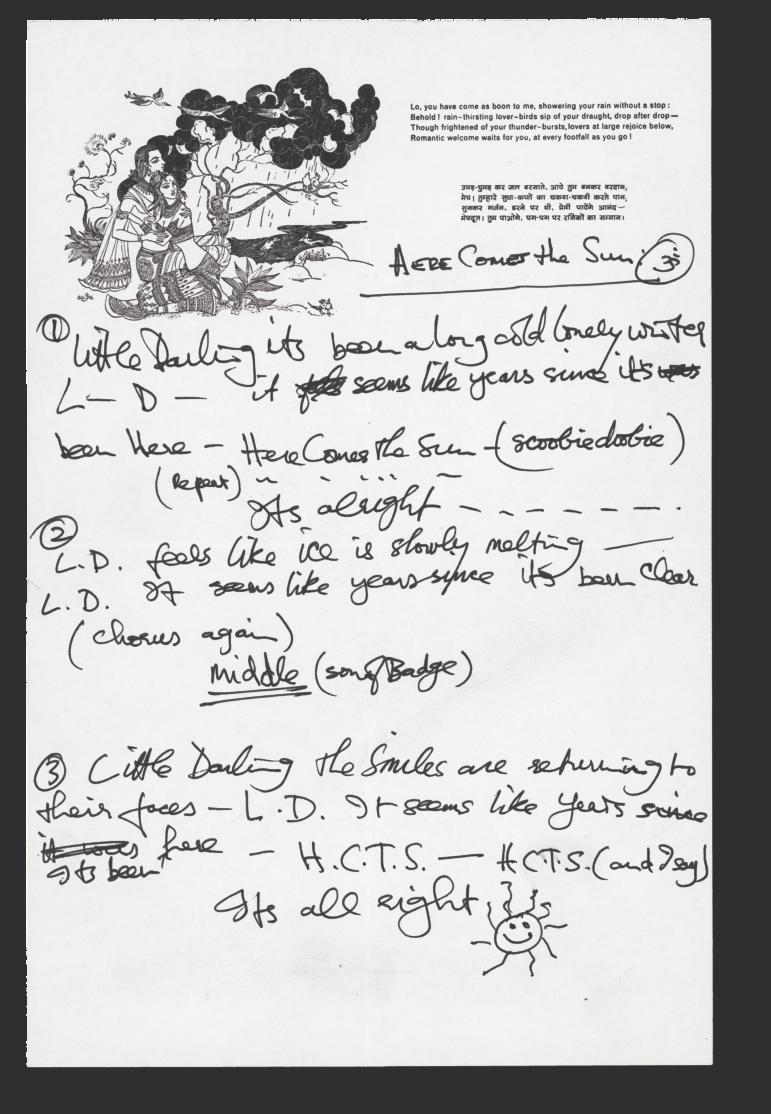 Lo, you have come as boon to me, showering your rain without a stop :
Behold ! rain-thirsting lover-birds sip of your draught, drop after drop—
Though frightened of your thunder-bursts, lovers at large rejoice below,
Romantic welcome waits for you, at every footfall as you go !
उमड़-घुमड़ कर जल बरसाते, आये तुम बनकर वरदान,
मेघ! तुम्हारे सुधा-कणों का चकवा-चकवी करते पान,
सुनकर गर्जन, डरने पर भी, प्रेमी पायेंगे आनंद—
मेघदूत! तुम पाओगे, पग-पग पर रसिकों का सम्मान।
HERE COMES the Sun. ॐ
① Little Darling its been a long cold lonely winter
L — D — it seems like years since it's
been Here — Here Comes the Sun — (scoobiedoobie)
(Repeat) " " " "
Its alright – – – – – – – .
②
L.D. feels like ice is slowly melting —
L.D. It seems like years since its been clear
(chorus again)
Middle (son of Badge)
③ Little Darling the Smiles are returning to
their faces — L.D. It seems like years since
it was here — H.C.T.S. — H.C.T.S. (and I say)
Its been
Its all right